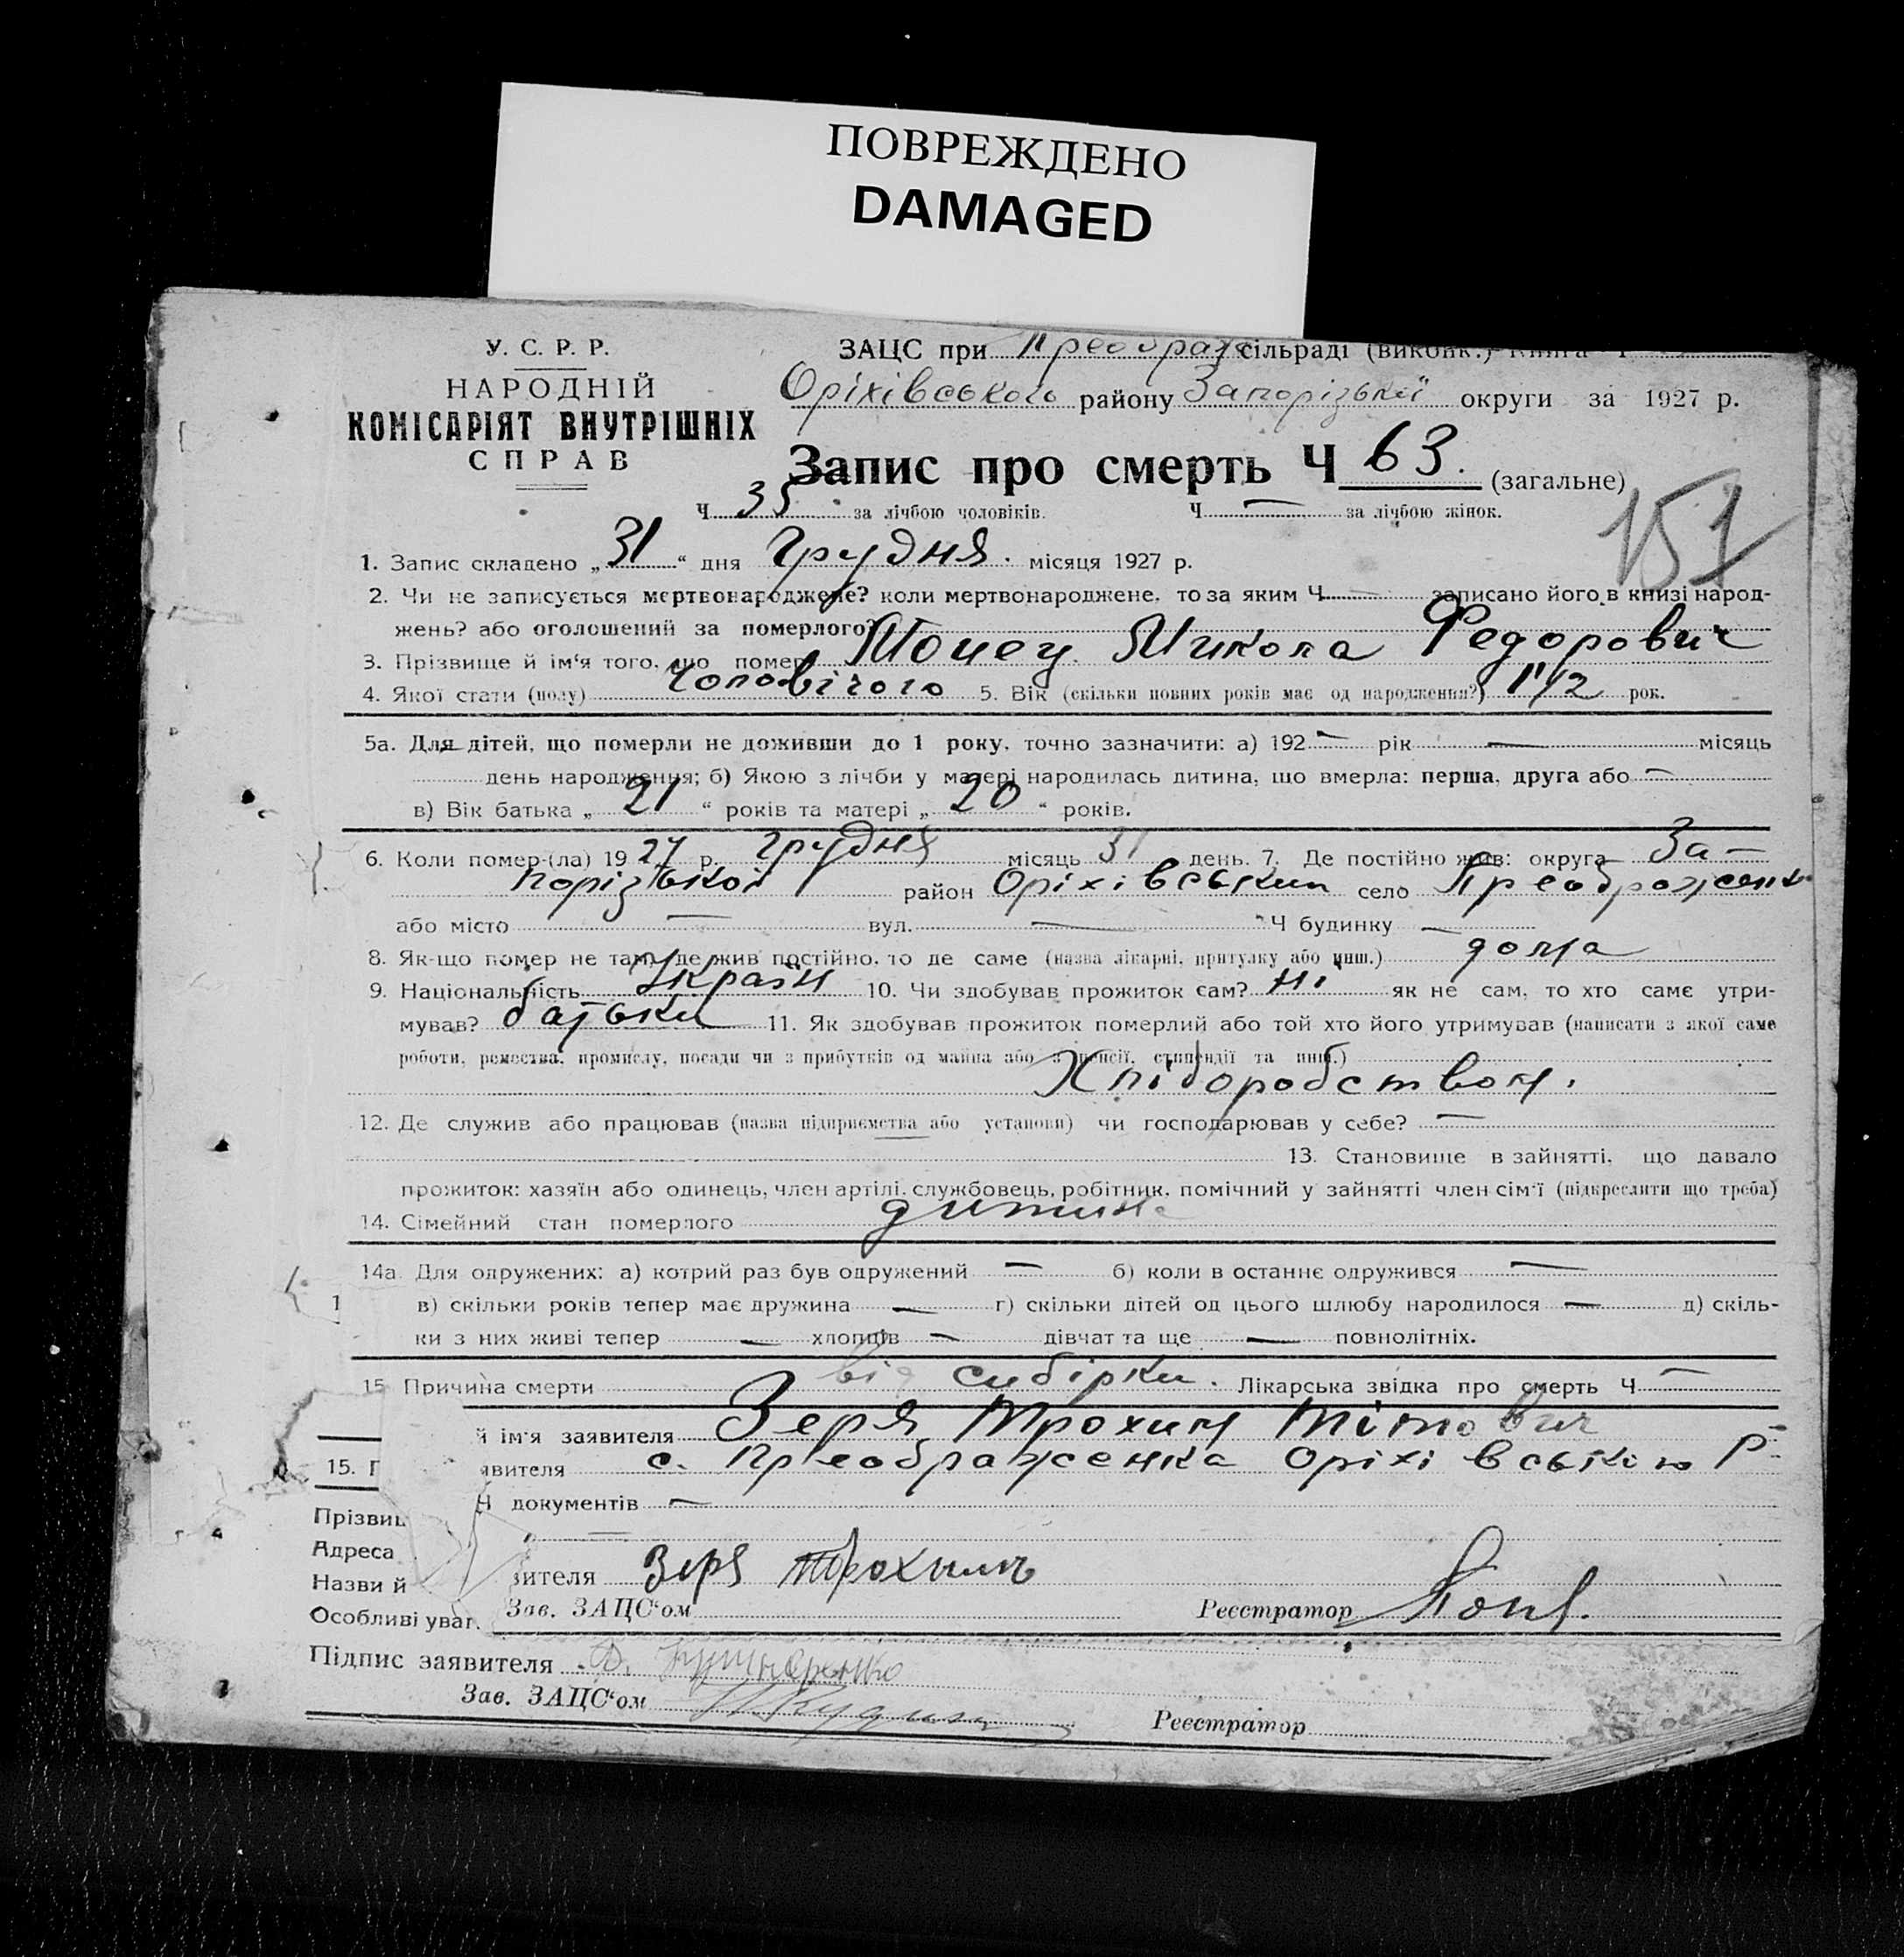 ПОВРЕЖДЕНО
DAMAGED
У. С. Р. Р.
НАРОДНІЙ
КОМІСАРІЯТ ВНУТРІШНІХ
СПРАВ
ЗАЦС при Преображ сільраді (виконк.) Книга
Оріхівського району Запорізької округи за 1927 р.
Запис про смерть Ч 63. (загальне)
151
Ч 35 за лічбою чоловіків. Ч — за лічбою жінок.
1. Запис складено „31“ дня Грудня. місяця 1927 р.
2. Чи не записується мертвонароджене? коли мертвонароджене, то за яким Ч — записано його в книзі народ-
жень? або оголошений за померлого?
3. Прізвище й ім'я того, що помер Микола Федорович
4. Якої стати (полу) Чоловічого 5. Вік (скільки повних років має од народження?) 1 1/2 рок.
5а. Для дітей, що померли не доживши до 1 року, точно зазначити: а) 192— рік — місяць
день народження; б) Якою з лічби у матері народилась дитина, що вмерла: перша, друга або —
в) Вік батька „21“ років та матері „20“ років.
6. Коли помер-(ла) 1927 р. грудня місяць 31 день. 7. Де постійно жив: округа За-
порізькой район Оріхівський село Преображенка
або місто — вул. — Ч будинку —
8. Як-що помер не там, де жив постійно, то де саме (назва лікарні, притулку або инш.) дома
9. Національність Україн 10. Чи здобував прожиток сам? ні як не сам, то хто саме утри-
мував? батьки 11. Як здобував прожиток померлий або той хто його утримував (написати з якої саме
роботи, ремества, промислу, посади чи з прибутків од майна або з пенсії, стипендії та инш.)
Хліборобством.
12. Де служив або працював (назва підприємства або установи) чи господарював у себе? —
13. Становище в зайнятті, що давало
прожиток: хазяїн або одинець, член артілі, службовець, робітник, помічний у зайнятті член сім'ї (підкреслити що треба)
14. Сімейний стан померлого дитина
14а Для одружених: а) котрий раз був одружений — б) коли в останнє одружився —
1 в) скільки років тепер має дружина — г) скільки дітей од цього шлюбу народилося — д) скіль-
ки з них живі тепер — хлопців — дівчат та ще — повнолітніх.
15 Причина смерти від сибірки. Лікарська звідка про смерть Ч —
й ім'я заявителя Зеря Трохим Тітович
15. П явителя с. Преображенка Оріхівського Р-
Ч документів —
Прізвищ
Адреса
Назви й вителя Зеря Трохымъ
Особливі уваг. Зав. ЗАЦС'ом Реєстратор
Підпис заявителя
Зав. ЗАЦС'ом Реєстратор